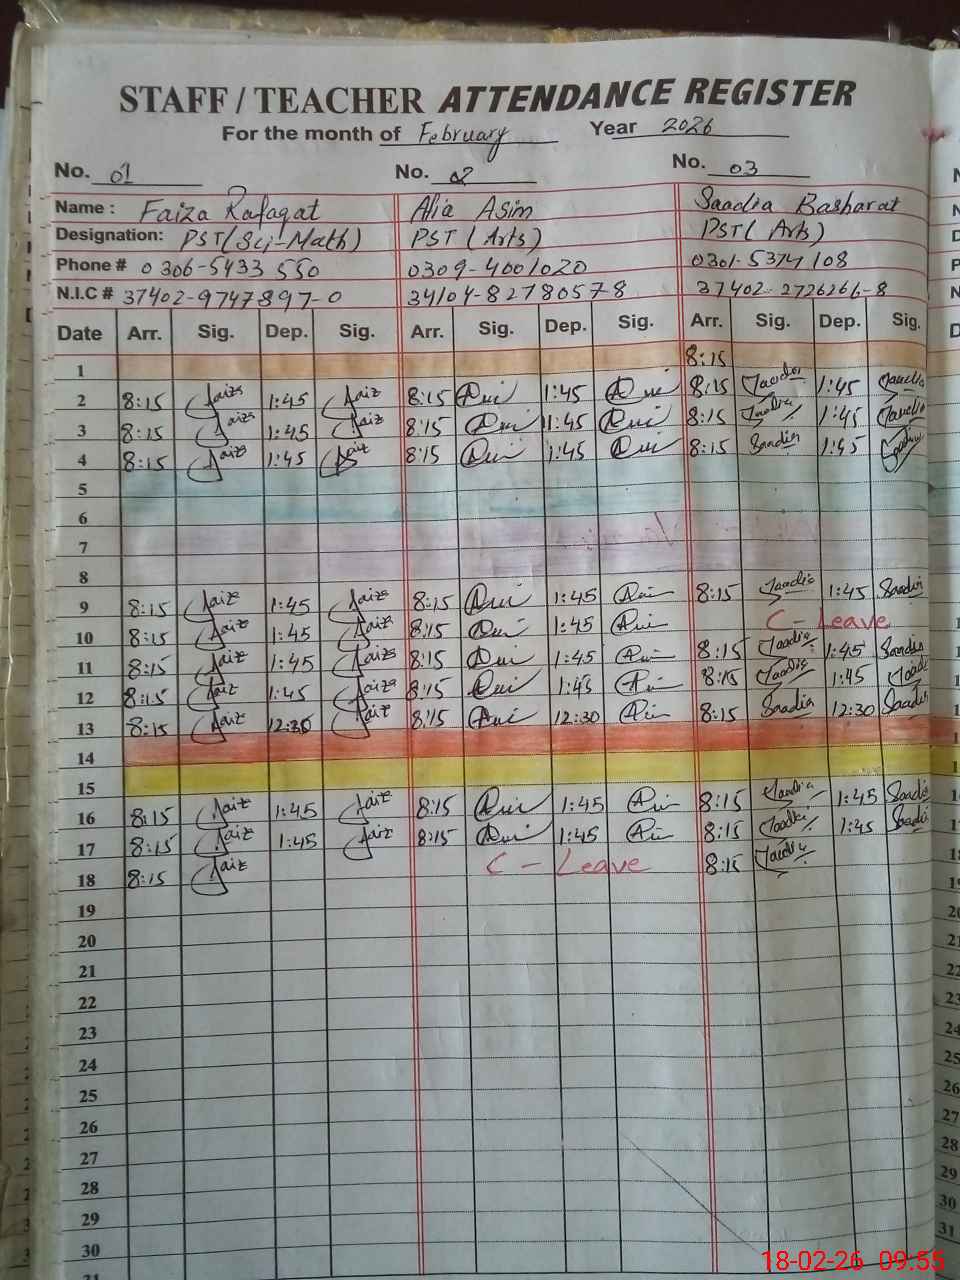 STAFF / TEACHER ATTENDANCE REGISTER
For the month of February Year 2026
No. 01 No. 02 No. 03
Name : Faiza Rafaqat Alia Asim Saadia Basharat
Designation: PST(Sci-Math) PST (Arts) PST (Arts)
Phone # 0306-5433 550 0309-4001020 0301-5374108
N.I.C # 37402-9747897-0 34104-8278057-8 37402-2726266-8
Date Arr. Sig. Dep. Sig. Arr. Sig. Dep. Sig. Arr. Sig. Dep. Sig.
1 8:15
2 8:15 Faiz 1:45 Faiz 8:15 1:45 8:15 Saadia 1:45 Saadia
3 8:15 Faiz 1:45 Faiz 8:15 1:45 8:15 Saadia 1:45 Saadia
4 8:15 Faiz 1:45 Faiz 8:15 1:45 8:15 Saadia 1:45 Saadia
5
6
7
8
9 8:15 Faiz 1:45 Faiz 8:15 1:45 8:15 Saadia 1:45 Saadia
10 8:15 Faiz 1:45 Faiz 8:15 1:45 C - Leave
11 8:15 Faiz 1:45 Faiz 8:15 1:45 8:15 Saadia 1:45 Saadia
12 8:15 Faiz 1:45 Faiz 8:15 1:45 8:15 Saadia 1:45 Saadia
13 8:15 Faiz 12:30 Faiz 8:15 12:30 8:15 Saadia 12:30 Saadia
14
15
16 8:15 Faiz 1:45 Faiz 8:15 1:45 8:15 Saadia 1:45 Saadia
17 8:15 Faiz 1:45 Faiz 8:15 1:45 8:15 Saadia 1:45 Saadia
18 8:15 Faiz C - Leave 8:15 Saadia
19
20
21
22
23
24
25
26
27
28
29
30
31
18-02-26 09:55